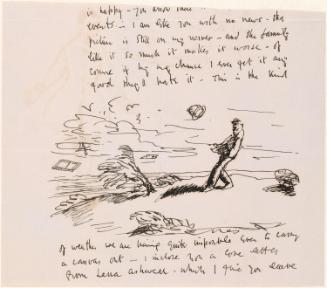 is happy – you know
events – I am like you with no news – the
picture is still on my nerves – and the family
like it so much it makes it worse – of
course if by any chance I ever get it any
good they'll hate it – This is the kind
of weather we are having quite impossible even to carry
a canvas out – I inclose you a love letter
from Lena Ashwell – which I give you leave